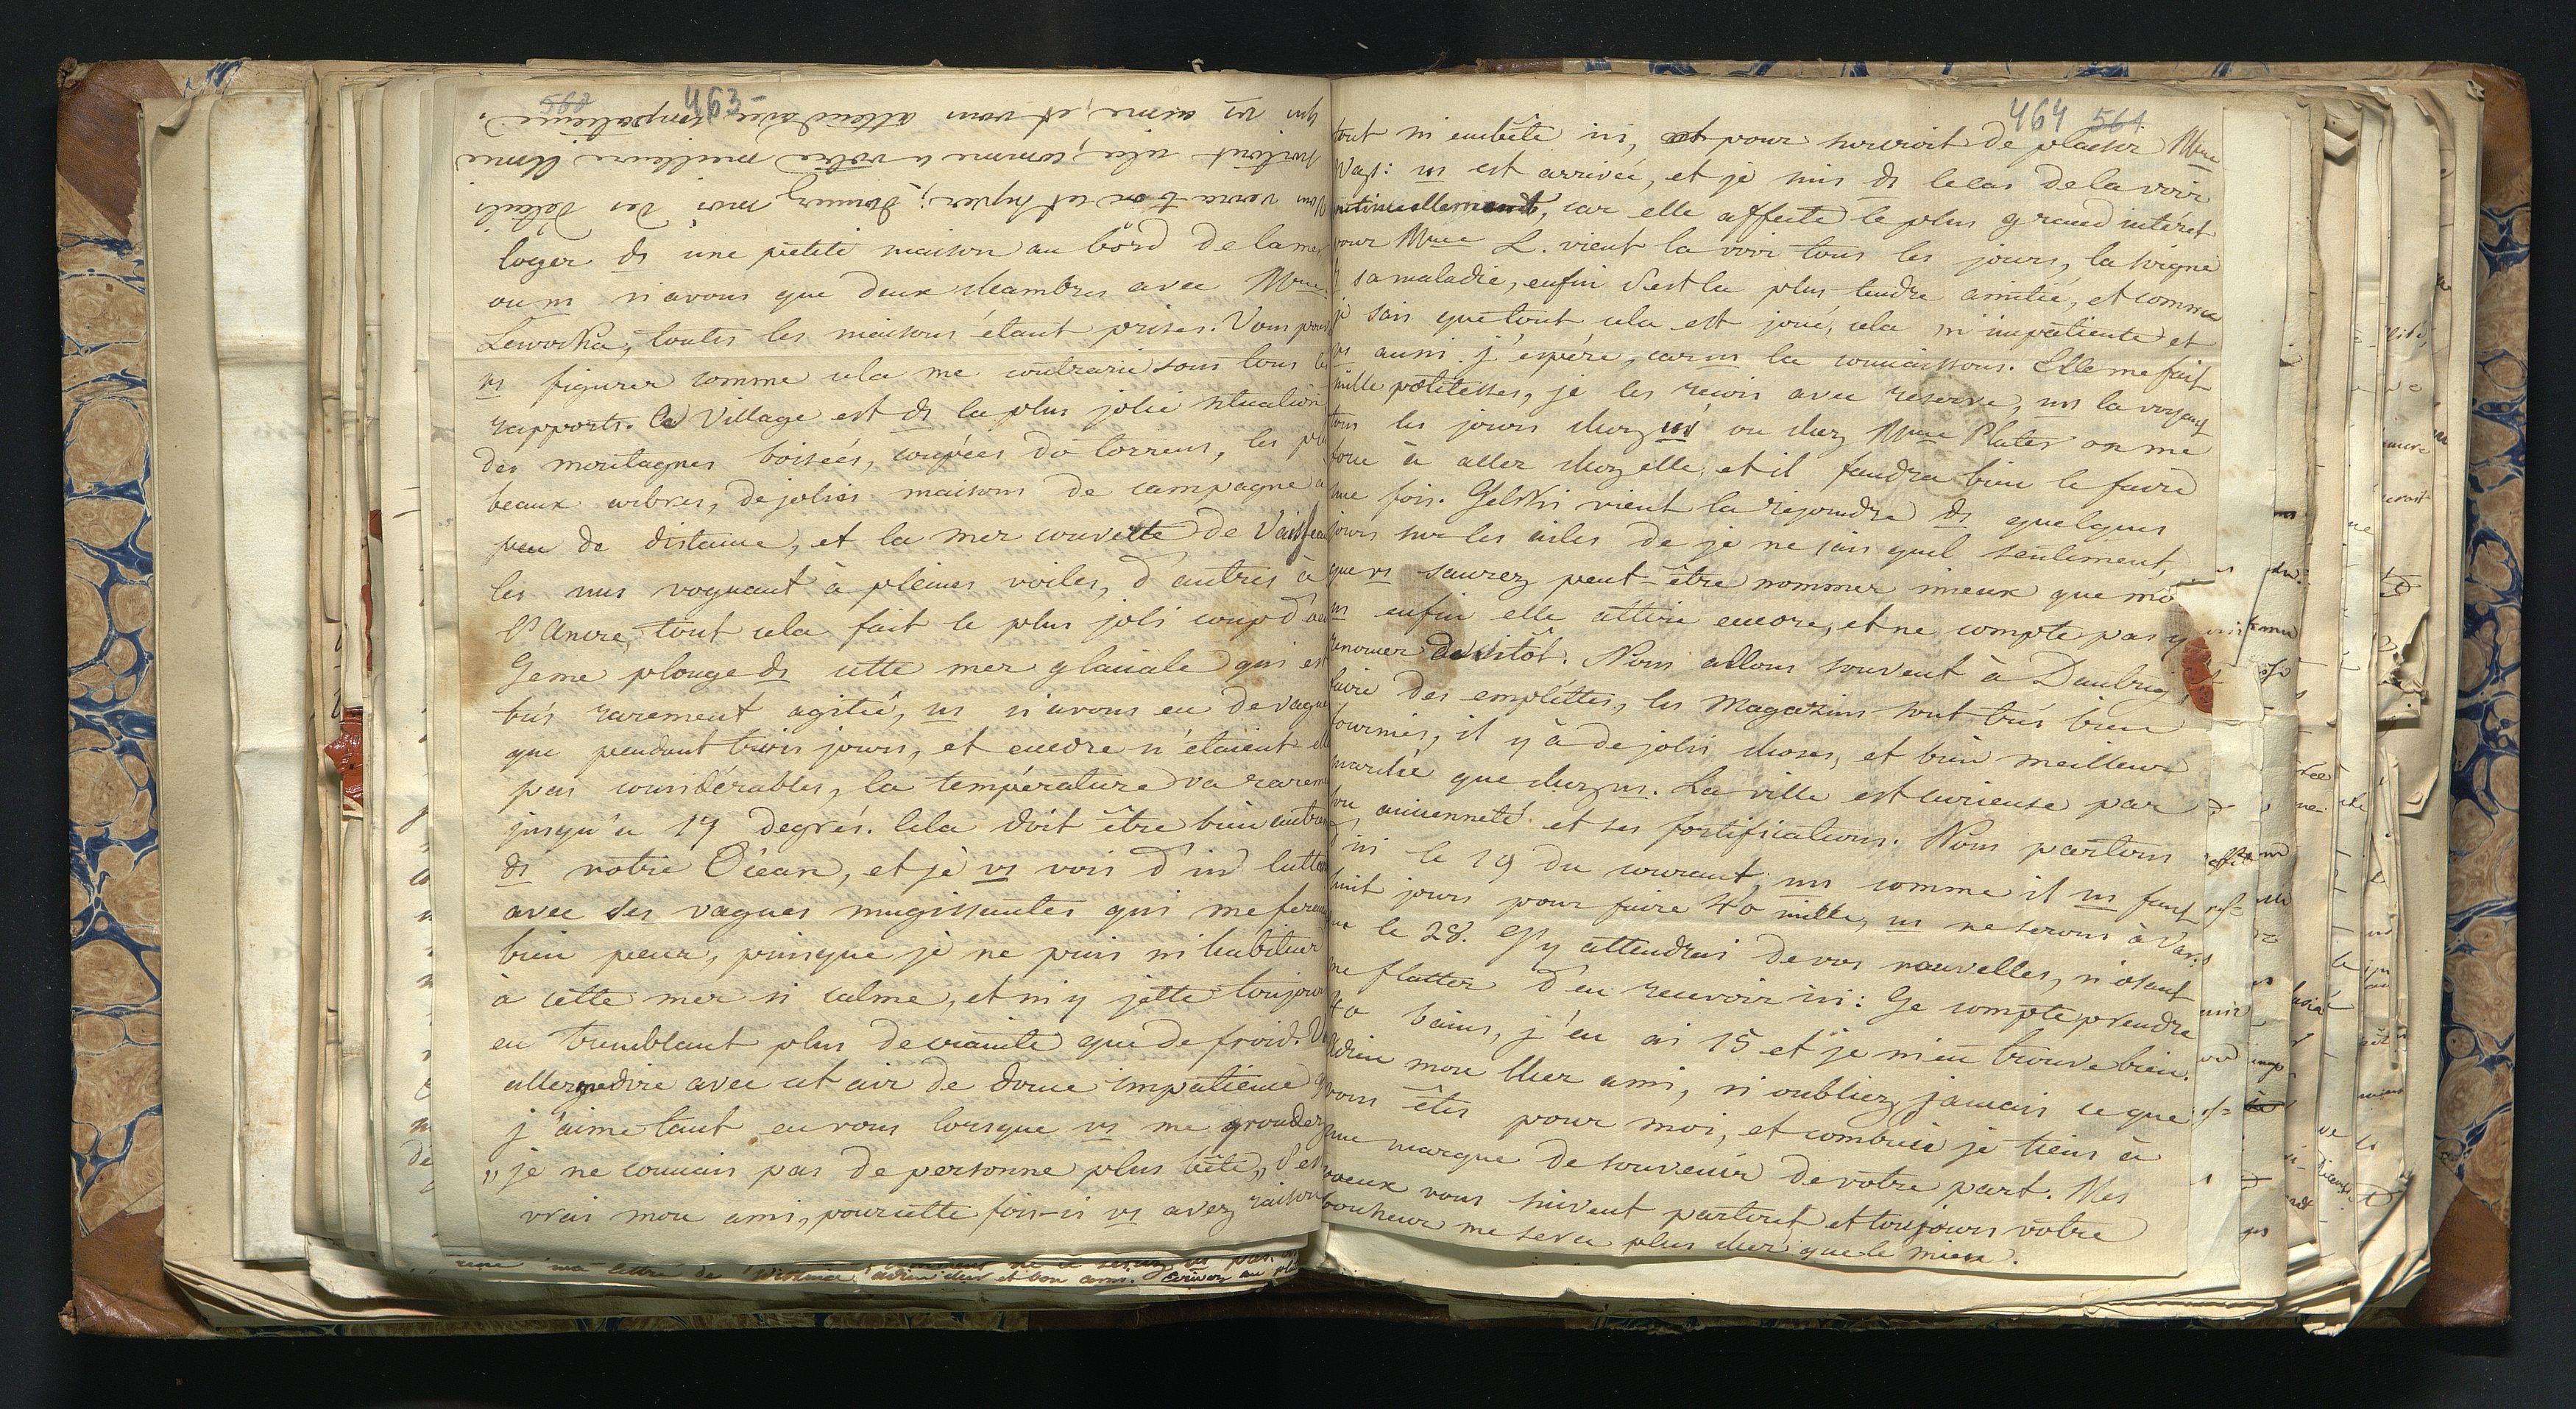 560 463-
loger ds une petite maison au bord de la mer
ou ns n'avons que deux chambres avec Mme
toutes les maisons étant prises. Vous
vs figurer comme cela me contrarie sous tous les
rapports. Ce Village est ds la plus jolie situation
des montagnes boisées, coupées de torrens, les plus
beaux arbres, de jolies maisons de campagne a
peu de distance, et la mer couverte de Vaisseau
les uns voguant à pleines voiles, d'autres à
l'Ancre, tout cela fait le plus joli coup d'oeil
Je me plonge ds cette mer glaciale qui est
très rarement agitée, ns n'avons eu de vague
que pendant trois jours, et encore n'étaient elle
pas considérables, la température va rareme
jusqu'a 17 degrés. Cela doit être bien autre
ds votre Océan, et je vs vois d'ici lutter
avec ses vagues mugissantes qui me feraient
bien peur, puisque je ne puis m'habituer
à cette mer si calme, et m'y jette toujours
en tremblant plus de crainte que de froid. Vs
allez me dire avec cet air de douce impatience q
j'aime tant en vous lorsque vs me grondez
„je ne connais pas de personne plus bête„ c'est
vrai mon ami, pour cette fois-ci vs avez raison
Vous verra t-on cet hyver; donnez moi des détails
surtout cela, comme a votre meilleure Amie
qui vs aime, et vous attend avec impatience.
ma lettre de
adieu cher et bon ami. Ecrivez au
464 561
tout m'embête ici, et pour surcroit de plaisir Mme
Vaz: ns est arrivée, et je suis ds le cas de la voir
car elle affecte le plus grand intéret
pour Mme L. vient la voir tous les jours, la soigne
ds sa maladie, enfin c'est la plus tendre amitié, et comme
je sais que tout cela est joué, cela m'impatiente et
vs aussi j'espère, car ns la connaissons. Elle me fait
mille politesses, je les reçois avec réserve, ns la voyons
tous les jours chez ns ou chez Mme Plater on me
force à aller chez elle, et il faudra bien le faire
une fois. Gelski vient la rejoindre ds quelques
jours sur les ailes de je ne sais quel sentiment,
que vs saurez peut-être nommer mieux que moi
ns enfin elle attire encore, et ne compte pas y
renoncer de sitôt. Nous allons souvent à Dantzig,
faire des emplettes, les Magazins sont très bien
fournis, il y à de jolis choses, et bien meilleur
marché que chez ns. La ville est curieuse par
son ancienneté et ses fortifications. Nous partons
d'ici le 19 du courant, ns comme il ns faut
huit jours pour faire 40 mille, ns ne serons à Vars
que le 28. J'y attendrai de vos nouvelles, n'osant
me flatter d'en recevoir ici: Je compte prendre
40 bains, j'en ai 15 et je m'en trouve bien.
Adieu mon Cher ami, n'oubliez jamais ce que
vous êtes pour moi, et combien je tiens à
une marque de souvenir de votre part. Mes
voeux vous suivent partout et toujours votre
bonheur me sera plus cher que le mien.